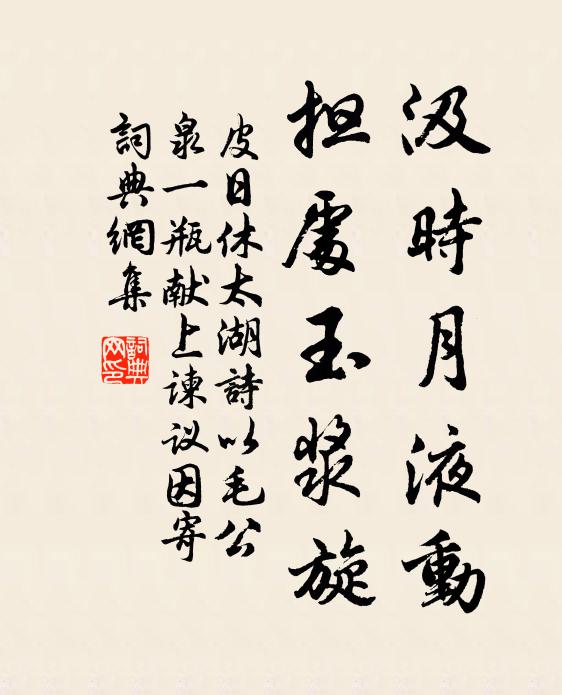 汲時月液動
担處玉漿旋
皮日休太湖詩以毛公
泉一瓶献上谏议因寄
詞典網集
詞典
网印